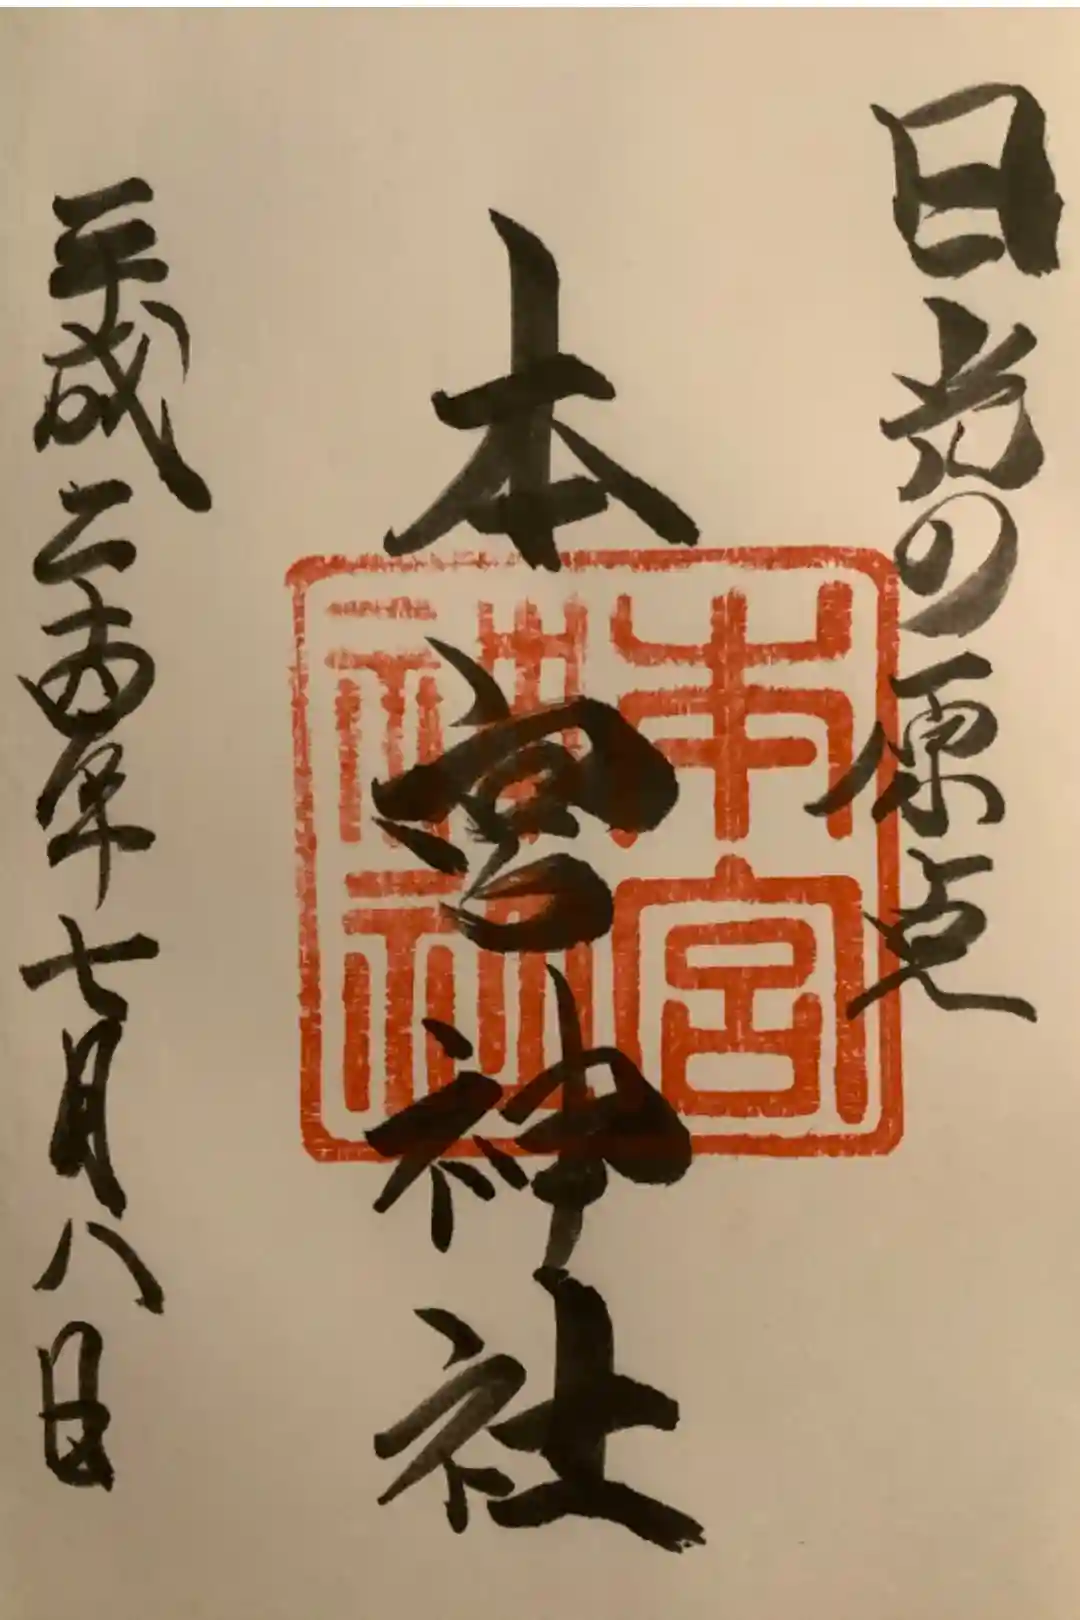 日光の原点
本宮神社
本宮
神社
平成二十四年七月八日